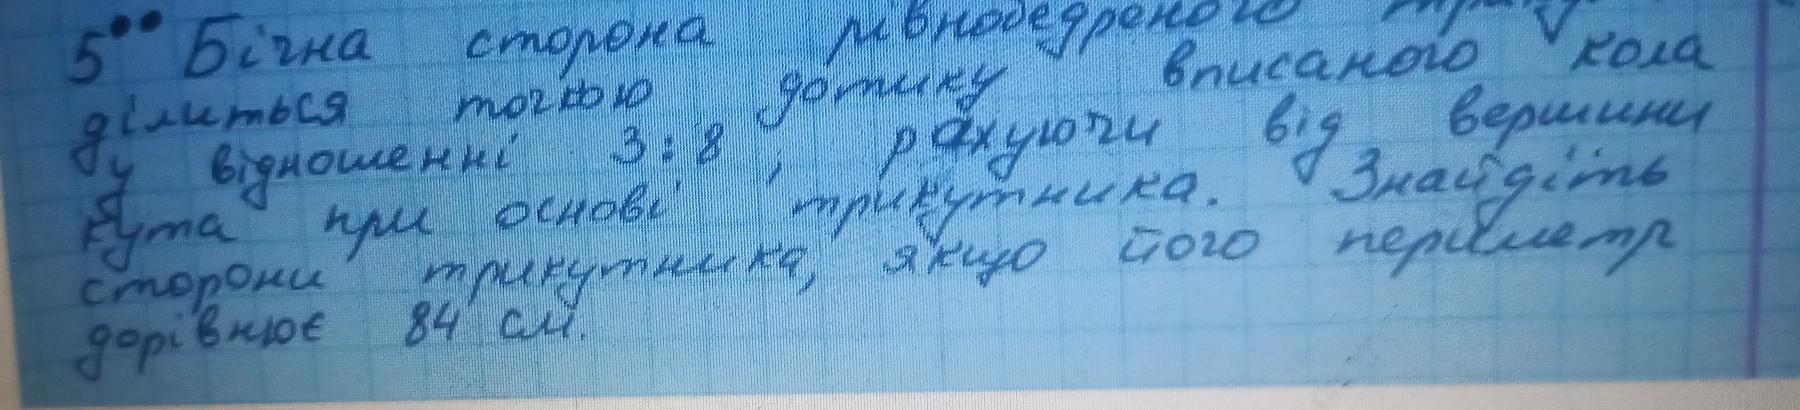 5•• Бічна сторона рівнобедреного
ділиться точкою дотику вписаного кола
у відношенні 3:8, рахуючи від вершини
кута при основі трикутника. Знайдіть
сторони трикутника, якщо його периметр
дорівнює 84 см.